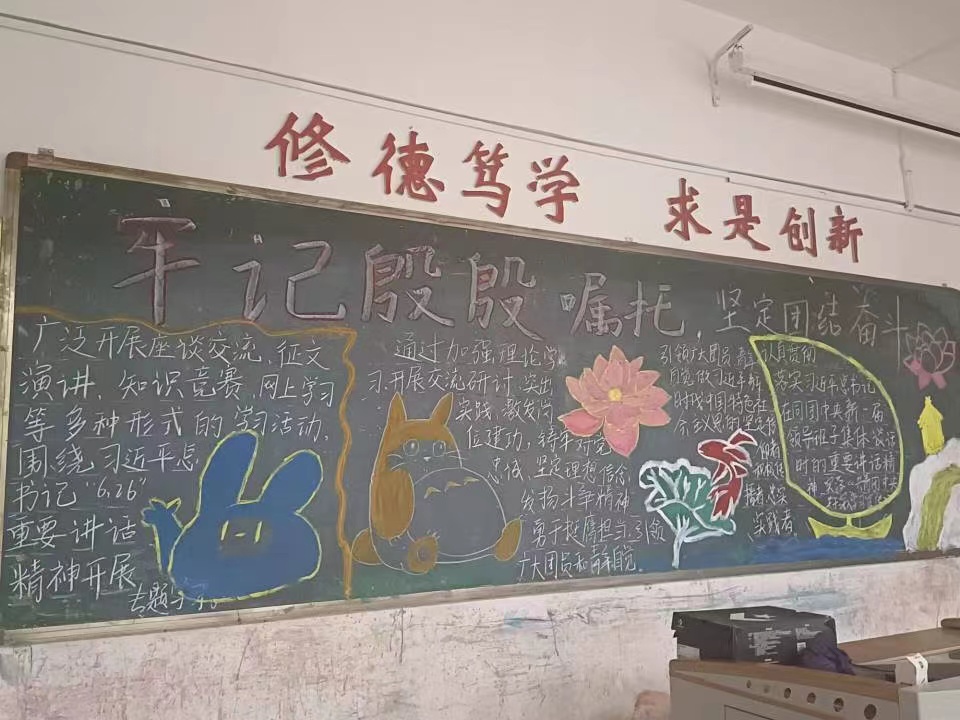 修德笃学 求是创新
牢记殷殷嘱托,坚定团结奋斗
广泛开展座谈交流,征文
演讲、知识竞赛、网上学习
等多种形式的学习活动,
围绕习近平总
书记"6.26"
重要讲话
精神开展
专题学习。
通过加强理论学
习,开展交流研讨,突出
实践,激发岗
位建功,铸牢对党
忠诚、坚定理想信念
发扬斗争精神
勇于挺膺担当,引领
广大团员和青年自觉
引领广大团员青年
自觉做习近平新
时代中国特色社
会主义的坚定
实践者
认真贯彻
落实习近平总书记
在同团中央新一届
领导班子集体谈话
时的重要讲话精